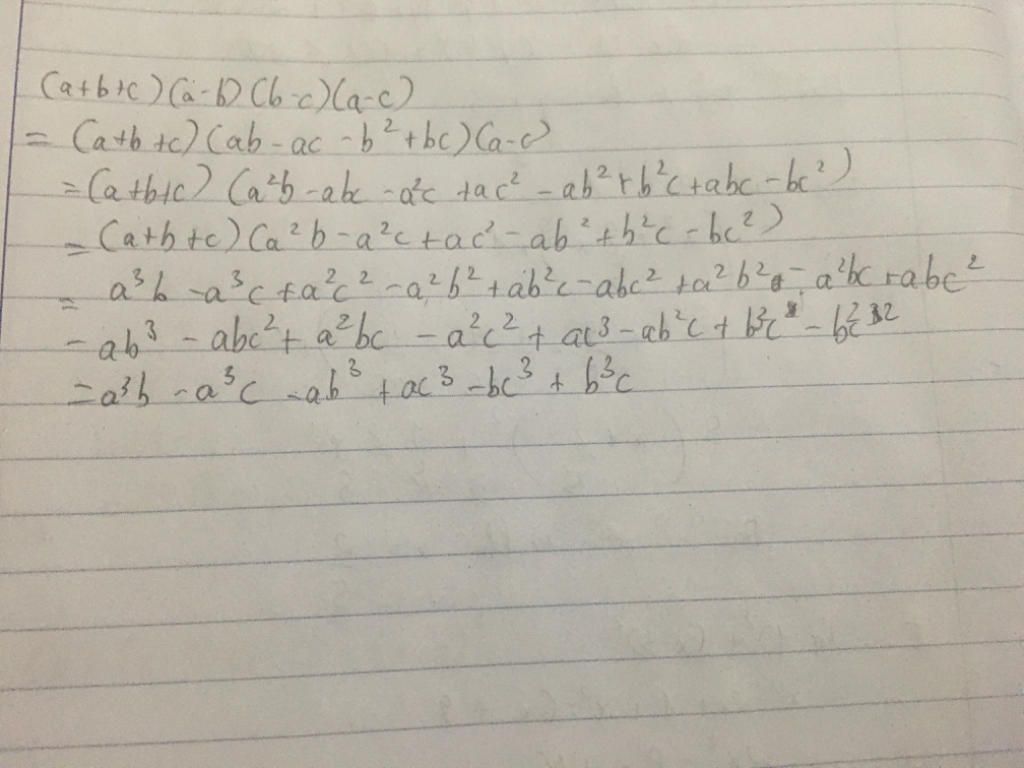 (a+b+c)(a-b)(b-c)(a-c)
= (a+b+c)(ab-ac-b²+bc)(a-c)
=(a+b+c)(a²b-abc-a²c+ac²-ab²+b²c+abc-bc²)
=(a+b+c)(a²b-a²c+ac²-ab²+b²c-bc²)
= a³b-a³c+a²c²-a²b²+ab²c-abc²+a²b²-a²bc+abc²
-ab³-abc²+a²bc-a²c²+ac³-ab²c+b³c
=a³b-a³c-ab³+ac³-bc³+b³c